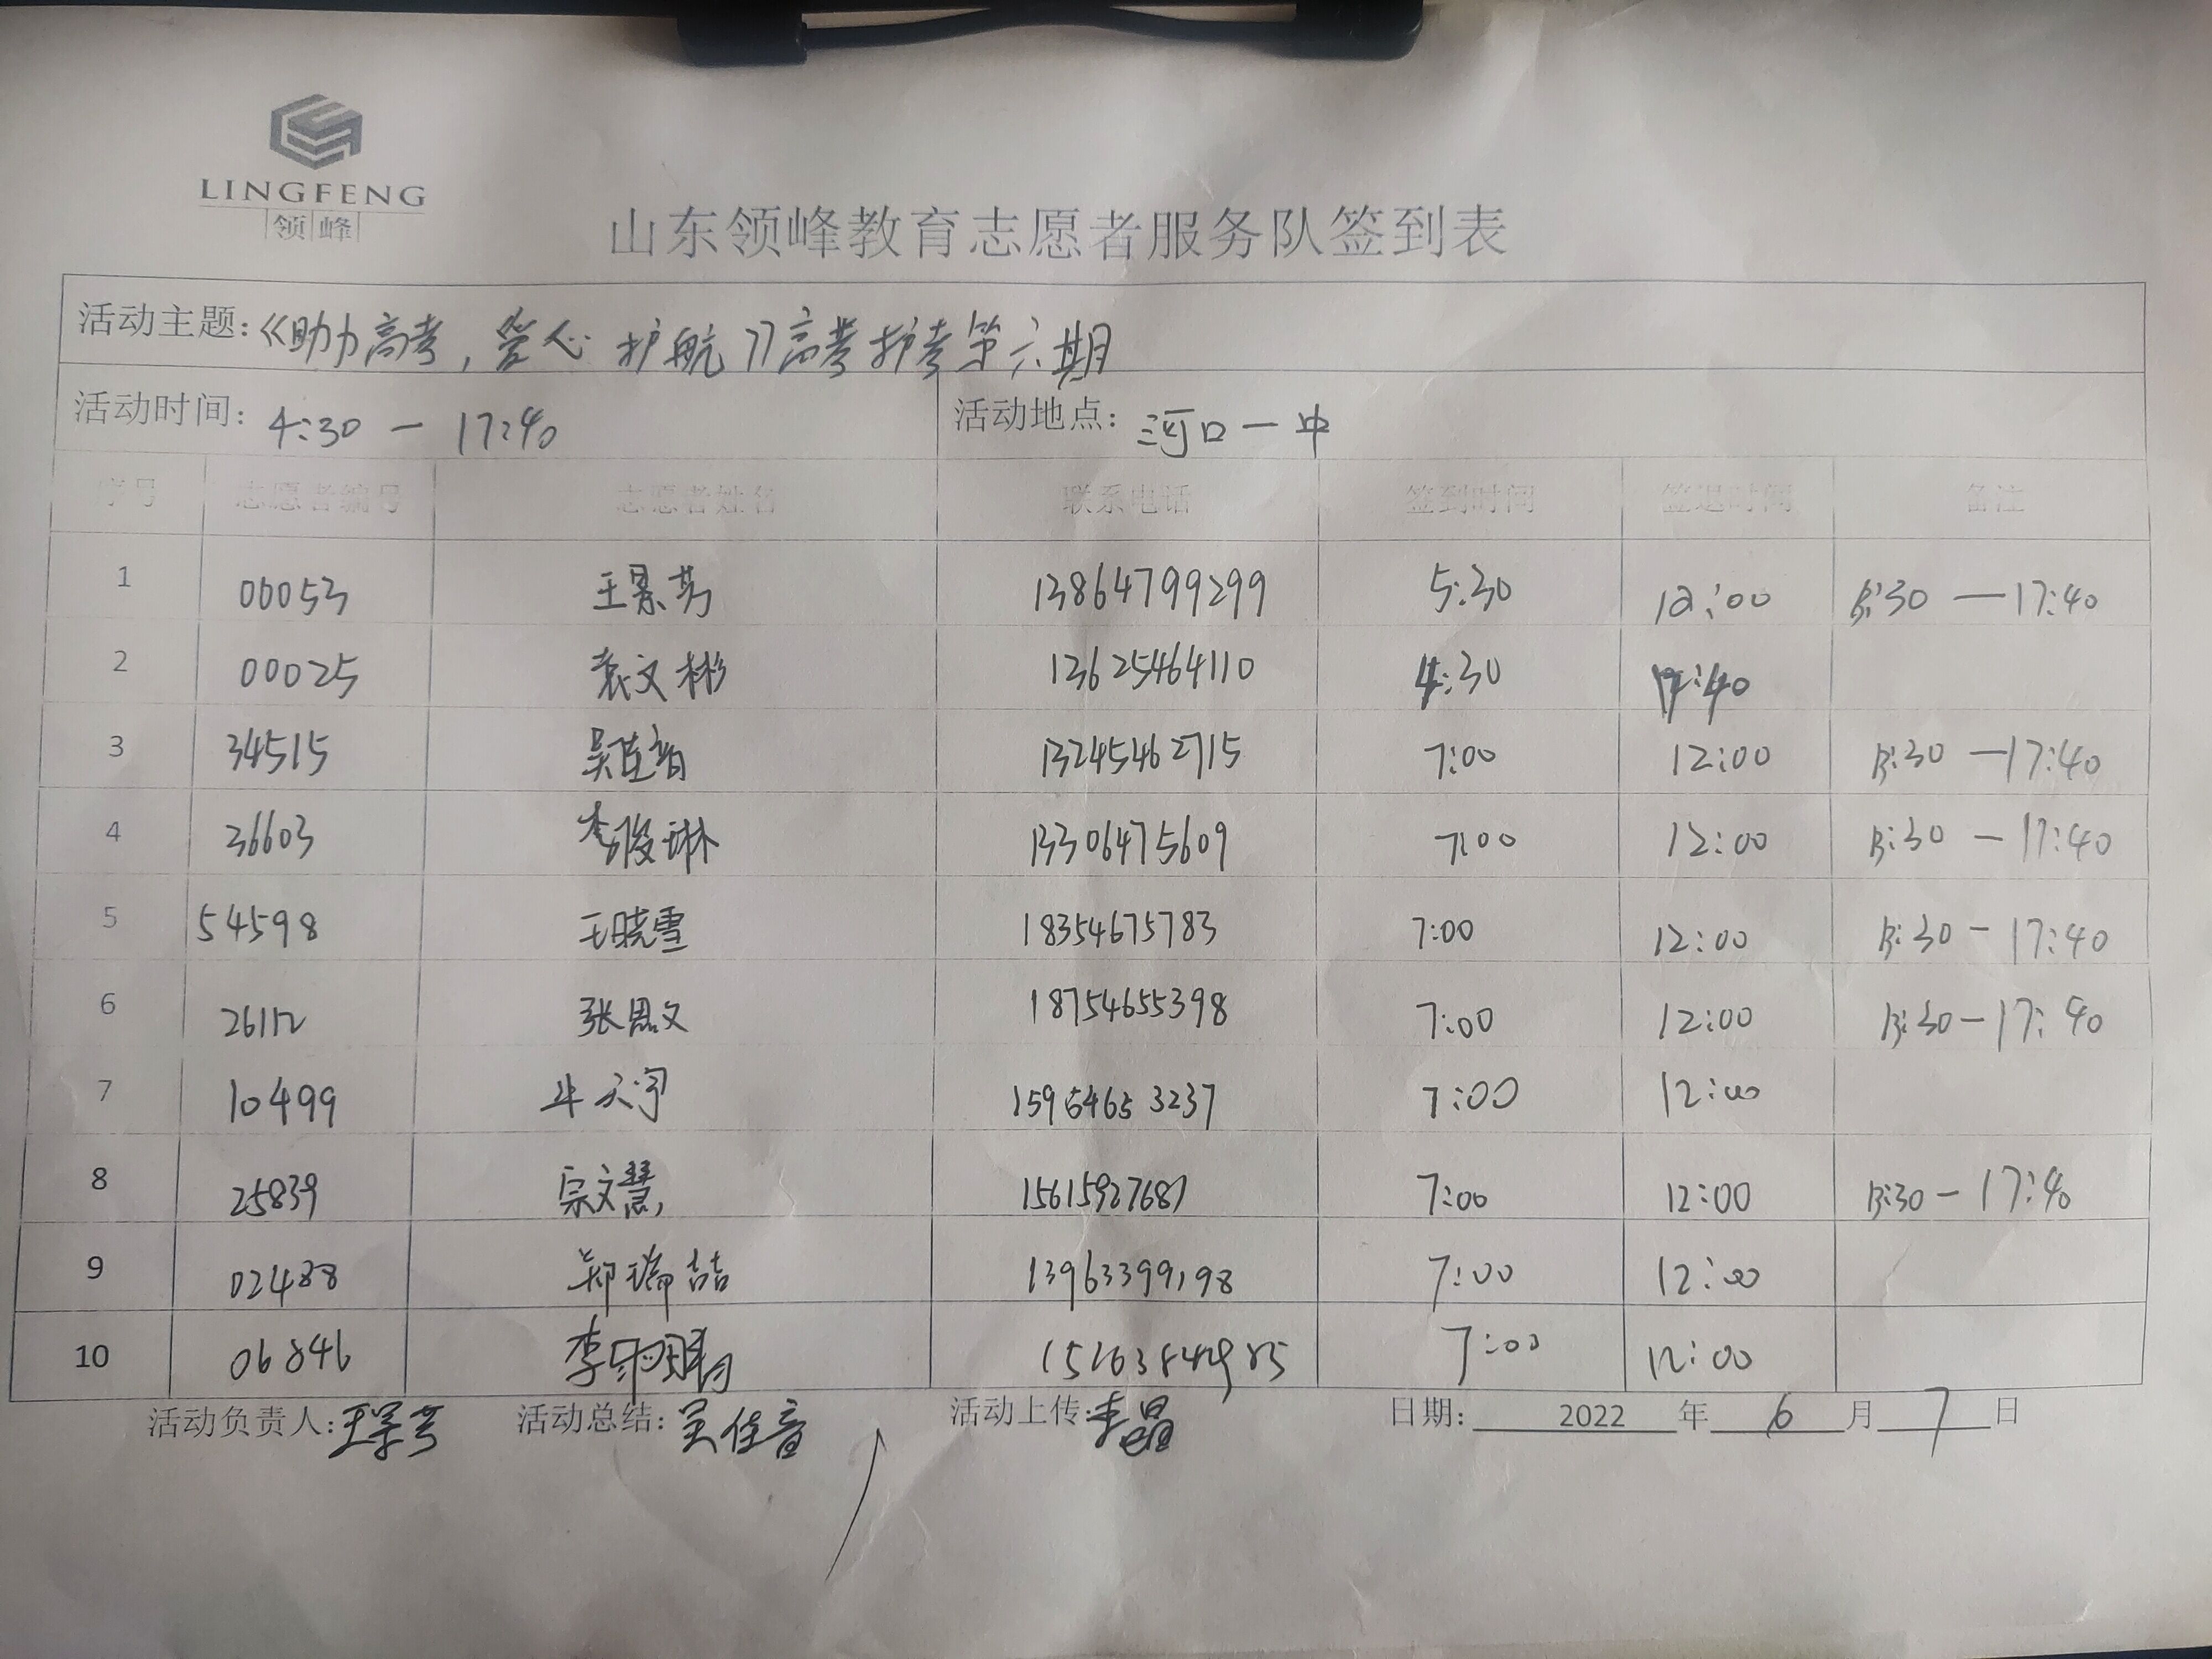 LINGFENG
领峰
山东领峰教育志愿者服务队签到表
活动主题:《助力高考,爱心护航》高考护考第六期
活动时间: 4:30 — 17:40 活动地点: 河口一中
序号 志愿者编号 志愿者姓名 联系电话 签到时间 签退时间 备注
1 00053 王景芳 13864799299 5:30 12:00 13:30 — 17:40
2 00025 袁文彬 13625464110 4:30 17:40
3 34515 吴佳音 13245462715 7:00 12:00 13:30 — 17:40
4 36603 李俊琳 13306475609 7:00 12:00 13:30 — 17:40
5 54598 王晓雪 18354675783 7:00 12:00 13:30 - 17:40
6 26112 张思文 18754655398 7:00 12:00 13:30 - 17:40
7 10499 牛天宇 15965465 3237 7:00 12:00
8 25839 宗文慧 15615927681 7:00 12:00 13:30 - 17:40
9 02488 郑瑞喆 13963399198 7:00 12:00
10 06846 李 7:00 12:00
活动负责人:王景芳 活动总结:吴佳音 活动上传:李晶 日期: 2022 年 6 月 7 日